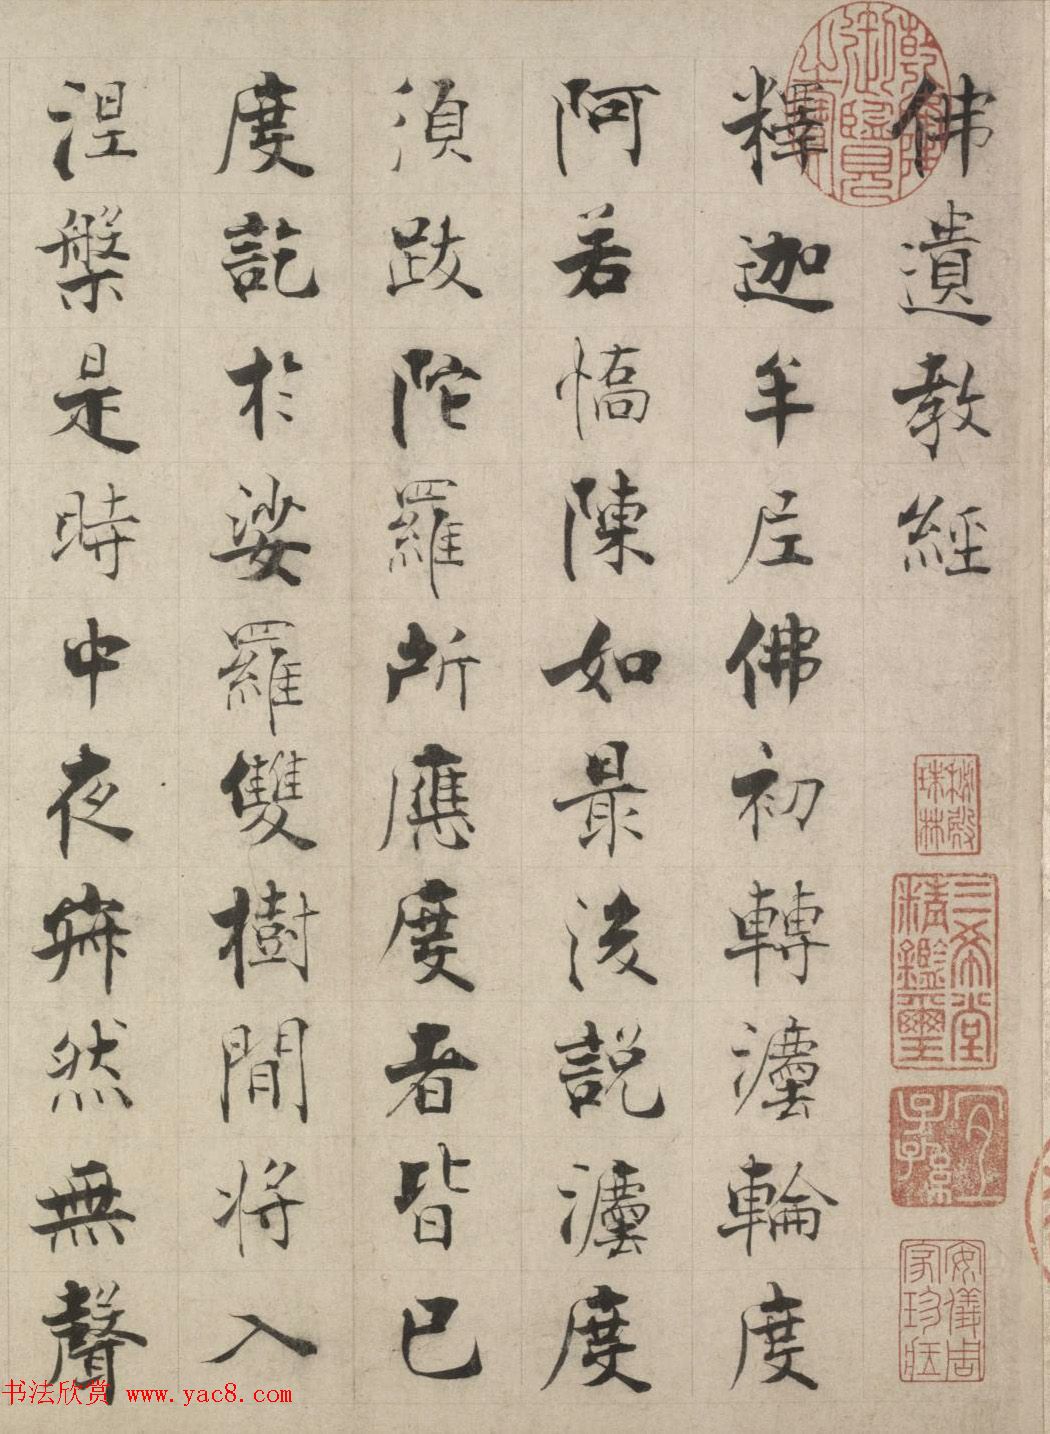 佛遺教經
釋迦牟尼佛初轉灋輪度
阿若憍陳如最後說灋度
須跋陀羅所應度者皆已
度訖於娑羅雙樹間將入
涅槃是時中夜寂然無聲
乾隆御覽之寶
秘殿珠林
三希堂精鑑璽
宜子孫
安儀周家珍藏
书法欣赏 www.yac8.com